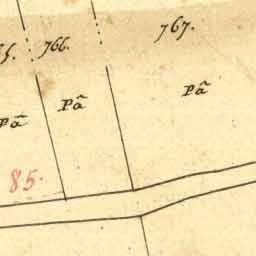 766.
767.
Pâ
Pâ
Pâ
85.